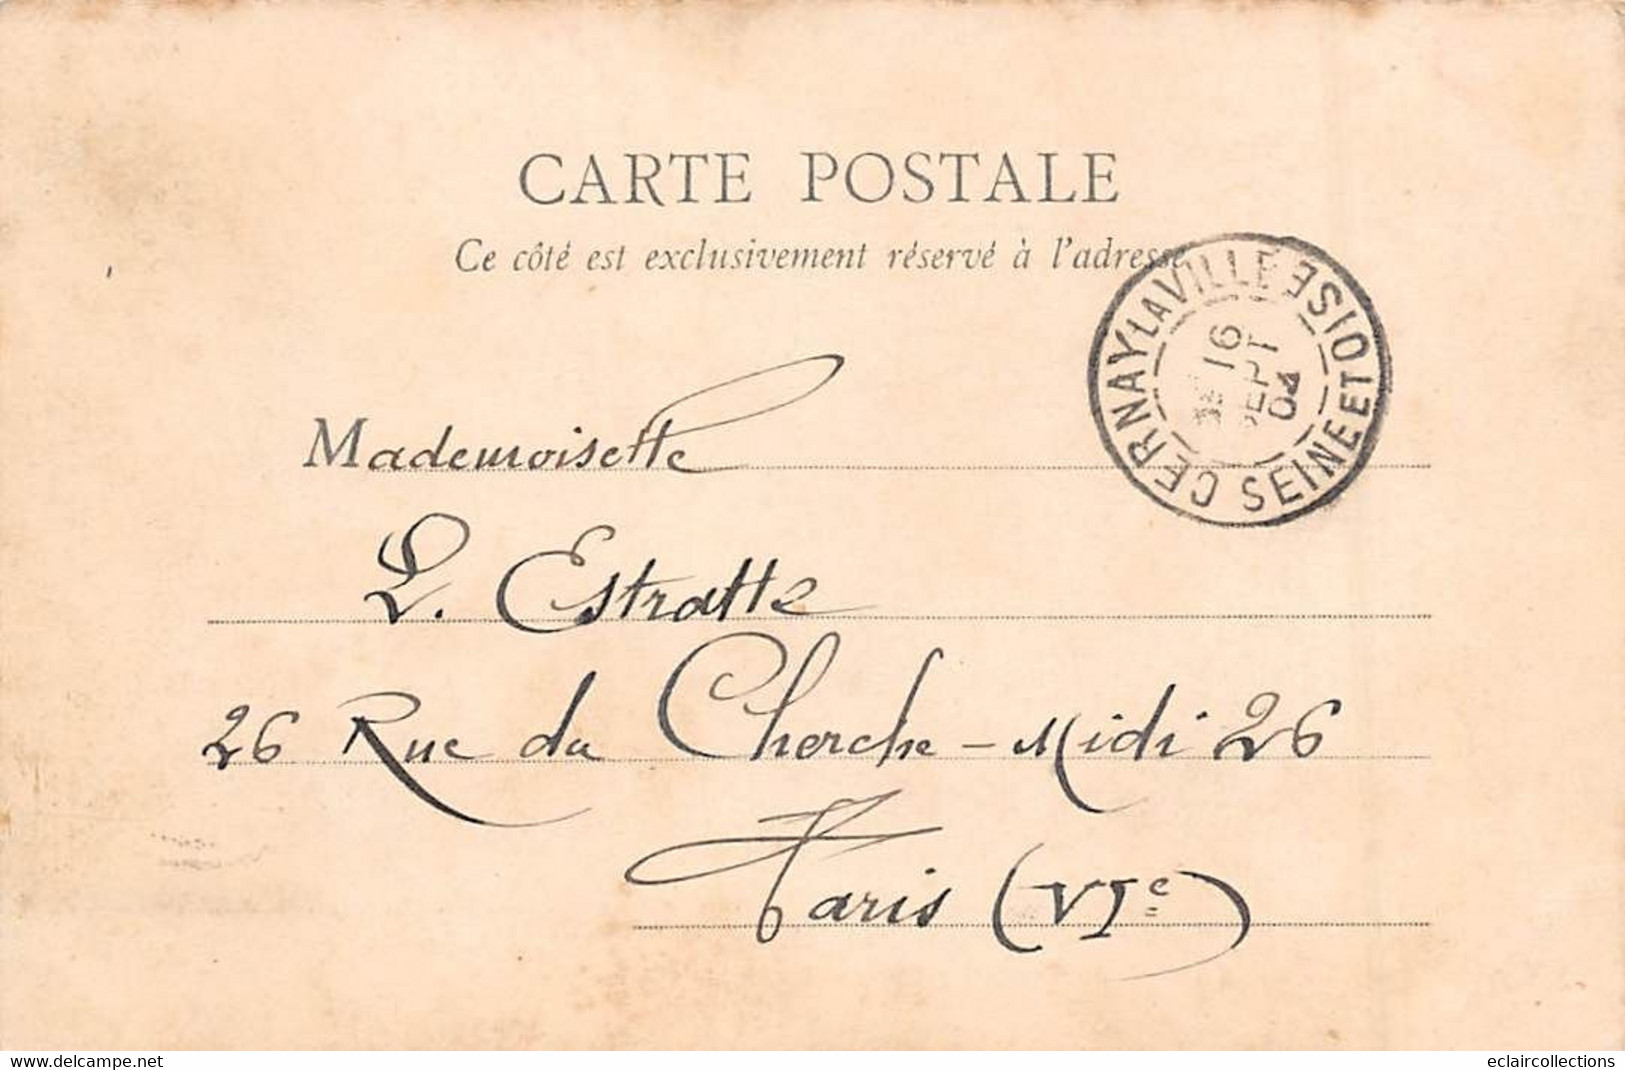 CARTE POSTALE
Ce côté est exclusivement réservé à l'adresse
CERNAY LA VILLE SEINE ET OISE
16
SEPT
04
Mademoiselle
L. Estratte
26 Rue du Cherche-Midi 26
Paris (VIe)
www.delcampe.net
eclaircollections